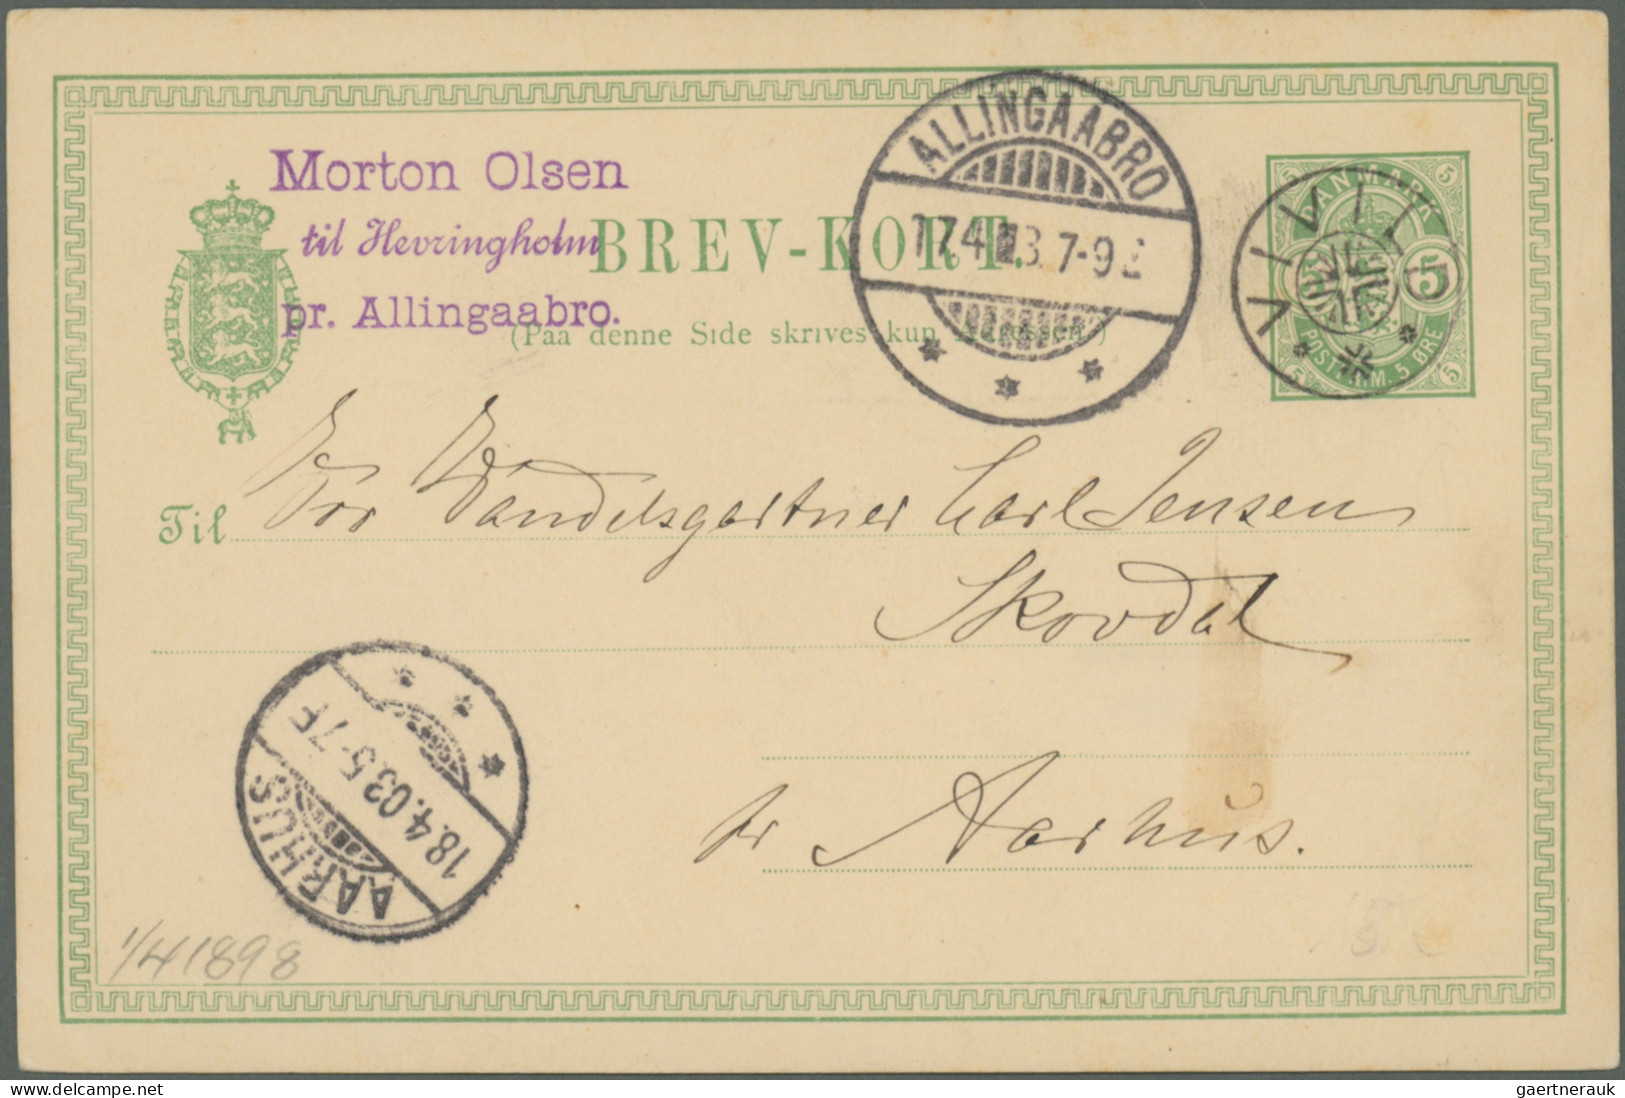 Morton Olsen
til Hevringholm
pr. Allingaabro.
BREV-KORT.
(Paa denne Side skrives kun Adressen.)
ALLINGAABRO
17.4 7-9
DANMARK
5 5
5 5
POSTFRM. 5 ØRE
5 5
VIVILD
Til Hr Handelsgartner Carl Jensen
Skovdal
pr Aarhus.
AARHUS
18.4.03.5-7F
1/4 1898
delcampe.net
gaertnerauk